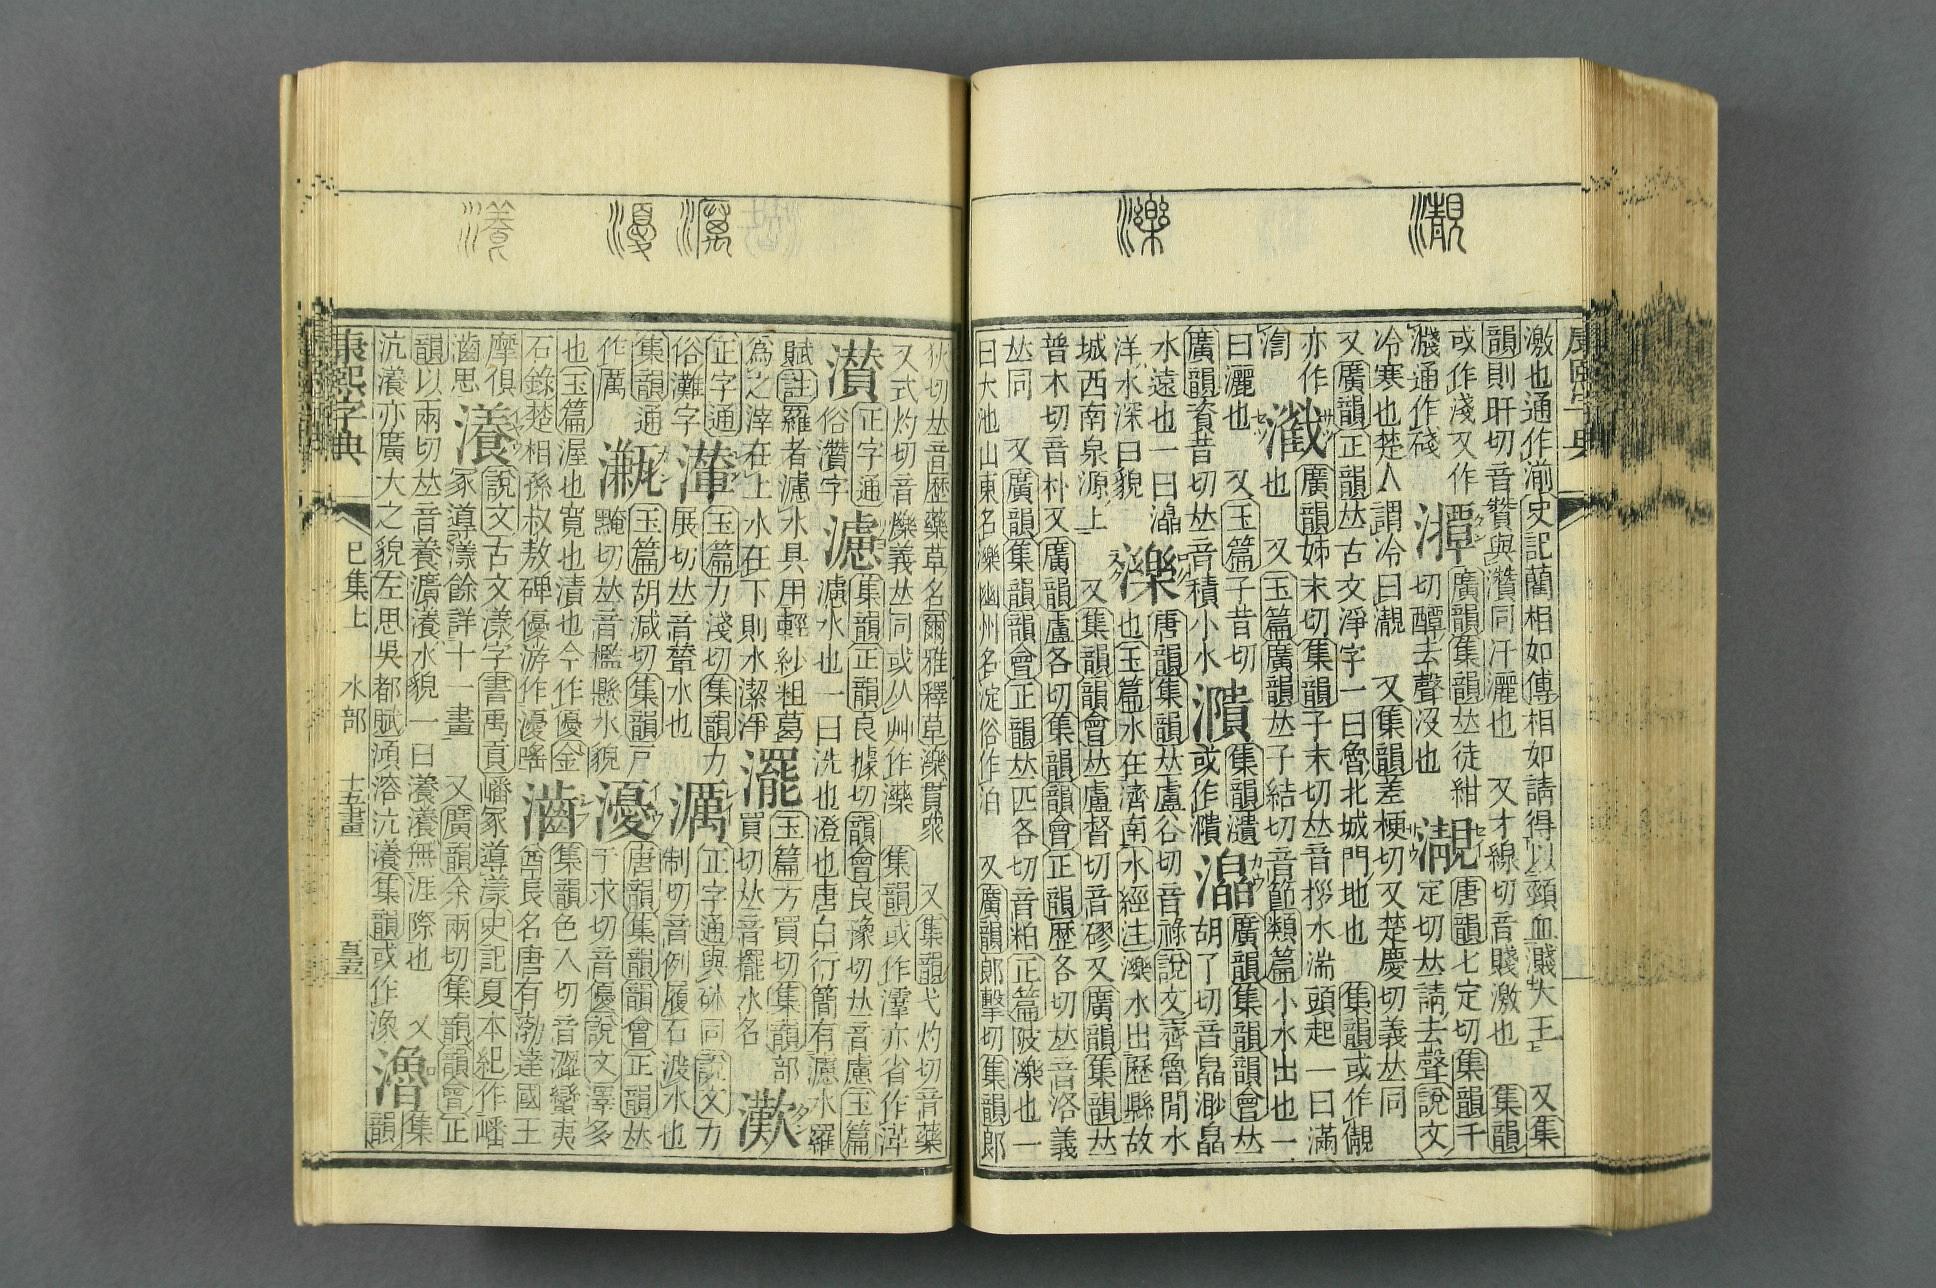 康熙字典
激也通作湔史記藺相如傳相如請得以頸血濺大王 又集
韻則旰切音贊與灒同汙灑也 又才線切音賤激也 集韻
或作淺又作
濺通作碊
潬
廣韻集韻𠀤徒紺
切醰去聲沒也
唐韻七定切集韻千
定切𠀤請去聲說文
冷寒也楚人謂冷曰 又集韻差梗切又楚慶切義𠀤同
又廣韻正韻𠀤古文淨字一曰魯北城門地也 集韻或作
亦作
廣韻姊末切集韻子末切𠀤音拶水湍頭起一曰滿
也 又玉篇廣韻𠀤子結切音節類篇小水出也一
曰灑也 又玉篇子昔切
廣韻資昔切𠀤音積小水
集韻瀆
或作
廣韻集韻韻會𠀤
胡了切音皛渺皛
水遠也一曰
洋洋水深曰貌
濼
唐韻集韻𠀤盧谷切音祿說文齊魯閒水
也玉篇水在濟南水經注濼水出歷縣故
城西南泉源上 又集韻韻會𠀤盧督切音 又廣韻集韻𠀤
普木切音朴又廣韻盧各切集韻韻會正韻歷各切𠀤音洛義
𠀤同 又廣韻集韻韻會正韻𠀤匹各切音粕正篇陂濼也一
曰大池山東名濼幽州名淀俗作泊 又廣韻郎擊切集韻郎
狄切𠀤音歷藥草名爾雅釋草濼貫眾 又集韻弋灼切音藥
又式灼切音爍義𠀤同或从艸作 集韻或作 亦省作
濽
正字通
俗灒字
濾
集韻正韻良據切韻會良豫切𠀤音慮玉篇
濾水也一曰洗也澄也唐白行簡有濾水羅
賦註羅者濾水具用輕紗粗葛
為之滓在上水在下則水潔淨
玉篇方買切集韻部
買切𠀤音擺水名
正字通
俗灘字
玉篇力淺切集韻力
展切𠀤音輦水也
濿
正字通與砅同說文力
制切音例履石渡水也
集韻通
作厲
玉篇胡減切集韻戶
黤切𠀤音檻懸水貌
瀀
唐韻集韻韻會正韻𠀤
于求切音優說文澤多
也玉篇渥也寬也漬也今作優金
石錄楚相孫叔敖碑優游作瀀
集韻色入切音澀蠻夷
酋長名唐有渤達國王
摩俱
思
瀁
說文古文漾字書禹貢嶓冢導漾史記夏本紀作嶓
冢導瀁餘詳十一畫 又廣韻余兩切集韻韻會正
韻以兩切𠀤音養瀇瀁水貌一曰瀁瀁無涯際也 又
沆瀁亦廣大之貌左思吳都賦澒溶沆瀁集韻或作潒
集
韻
康熙字典 巳集上 水部 十五畫